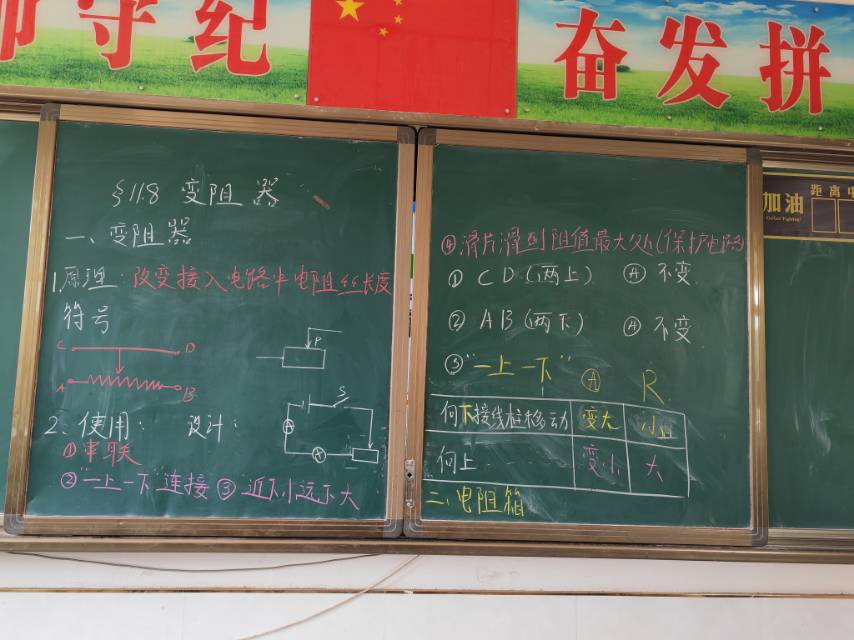 守纪
奋发拼
加油
距离中
§11.8 变阻器
一、变阻器
1.原理：改变接入电路中电阻丝长度
符号
C D
A B
P
2、使用： 设计：
S
A
①串联
②"一上一下"连接 ③近下小远下大
④滑片滑到阻值最大处(保护电路)
① CD(两上) Ⓐ 不变
② AB(两下) Ⓐ 不变
③"一上一下" Ⓐ R
向下接线柱移动 变大 小
向上 变小 大
二、电阻箱